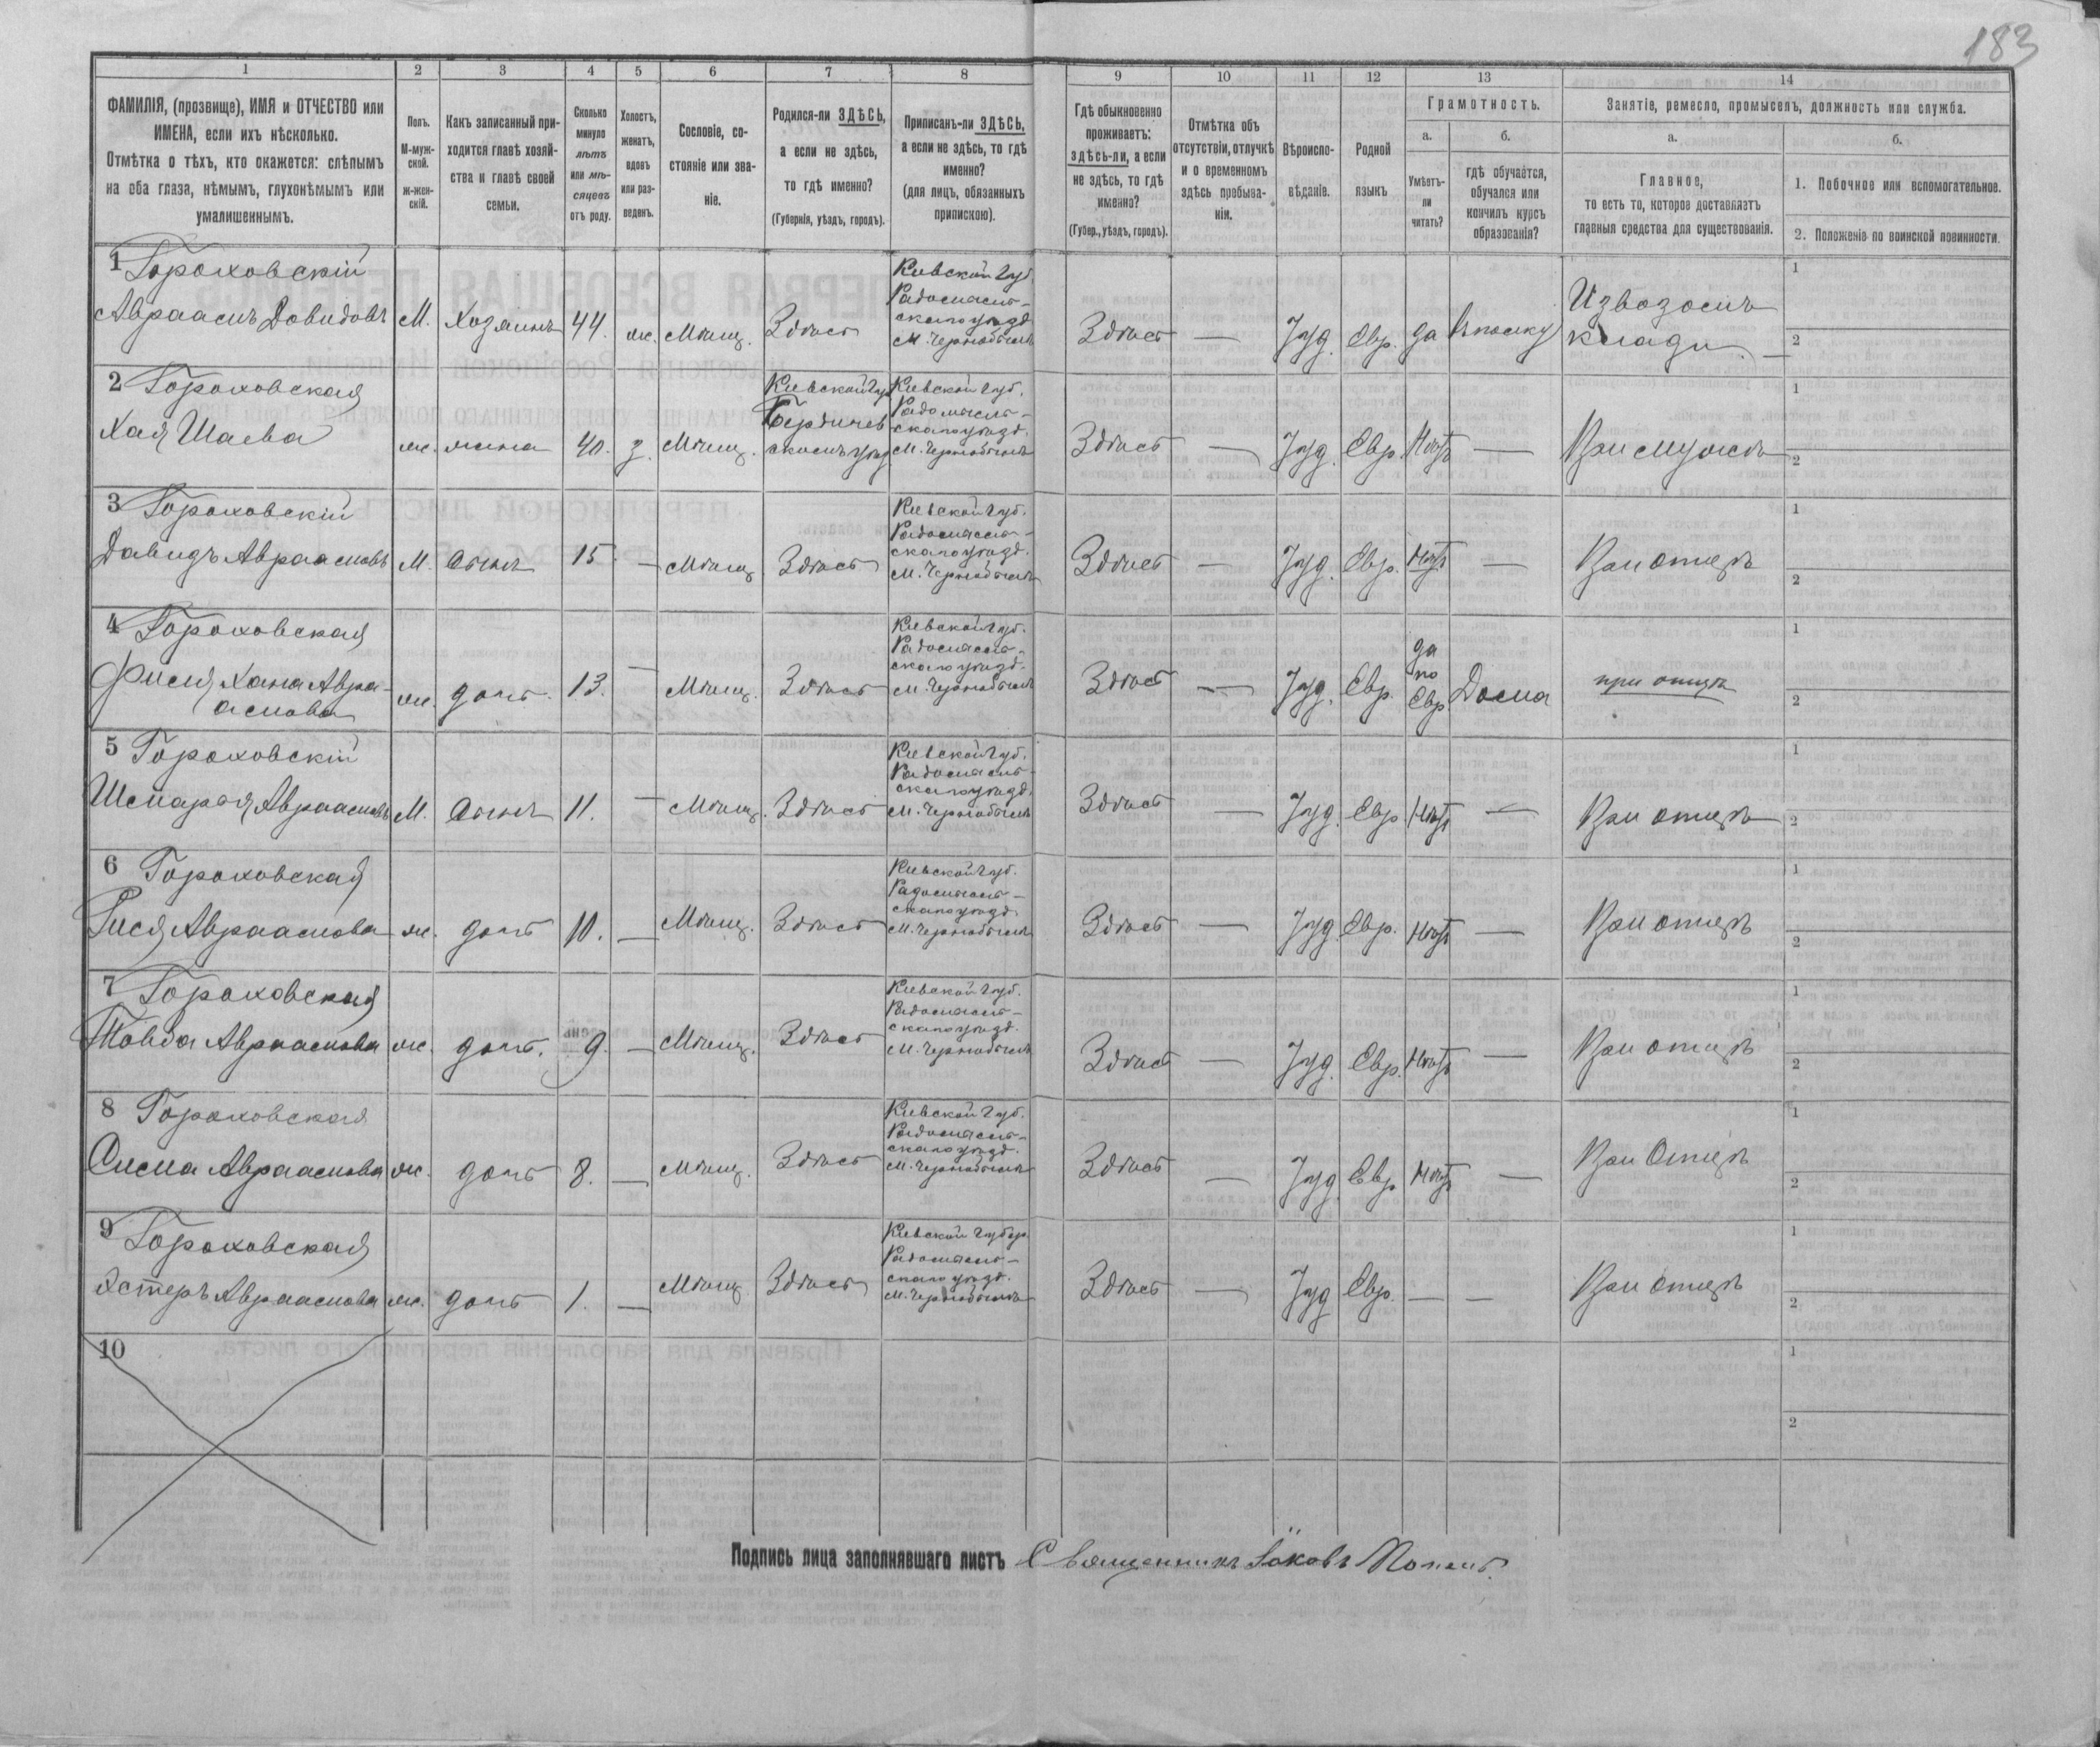 183
1 2 3 4 5 6 7 8 9 10 11 12 13 14
ФАМИЛІЯ, (прозвище), ИМЯ и ОТЧЕСТВО или
ИМЕНА, если ихъ нѣсколько.
Отмѣтка о тѣхъ, кто окажется: слѣпымъ
на оба глаза, нѣмымъ, глухонѣмымъ или
умалишеннымъ.
Полъ.
М-муж-
ской.
ж-жен-
скій.
Какъ записанный при-
ходится главѣ хозяй-
ства и главѣ своей
семьи.
Сколько
минуло
лѣтъ
или мѣ-
сяцевъ
отъ роду.
Холостъ,
женатъ,
вдовъ
или раз-
веденъ.
Сословіе, со-
стояніе или зва-
ніе.
Родился-ли ЗДѢСЬ,
а если не здѣсь,
то гдѣ именно?
(Губернія, уѣздъ, городъ).
Приписанъ-ли ЗДѢСЬ,
а если не здѣсь, то гдѣ
именно?
(для лицъ, обязанныхъ
припискою).
Гдѣ обыкновенно
проживаетъ:
здѣсь-ли, а если
не здѣсь, то гдѣ
именно?
(Губер., уѣздъ, городъ).
Отмѣтка объ
отсутствіи, отлучкѣ
и о временномъ
здѣсь пребыва-
ніи.
Вѣроиспо-
вѣданіе.
Родной
языкъ
Грамотность.
а. б.
Умѣетъ-
ли
читать?
гдѣ обучается,
обучался или
кончилъ курсъ
образованія?
Занятіе, ремесло, промыселъ, должность или служба.
а. б.
Главное,
то есть то, которое доставляетъ
главныя средства для существованія.
1. Побочное или вспомогательное.
2. Положеніе по воинской повинности.
1 Гороховскій
Авраамъ Довидовъ М. Хозяинъ 44. ж. Мѣщ. Здѣсь
Кіевской губ.
Радомысль-
скаго уѣзд.
М. Чернобыль
Здѣсь — Іуд. Евр. да
Извозомъ
клади. —
1
2
2 Гороховская
Хая Шаева ж. жена 40. з. Мѣщ.
Кіевской губ.
Бердичев
скомъ уѣзд
Кіевской губ.
Радомысль-
скаго уѣзд.
М. Чернобыль
Здѣсь — Іуд. Евр. Нѣтъ — При мужѣ
1
2
3 Гороховскій
Давидъ Авраамовъ М. Сынъ 15. — Мѣщ. Здѣсь
Кіевской губ.
Радомысль-
скаго уѣзд.
М. Чернобыль
Здѣсь — Іуд. Евр. Нѣтъ — При отцѣ
1
2
4 Гороховская
Фися Хана Авра-
амова ж. дочь. 13. — Мѣщ. Здѣсь
Кіевской губ.
Радомысль-
скаго уѣзд.
М. Чернобыль
Здѣсь — Іуд. Евр.
да
по
Евр. Дома при отцѣ
1
2
5 Гороховскій
Шемарая Авраамовъ М. Сынъ 11. — Мѣщ. Здѣсь
Кіевской губ.
Радомысль-
скаго уѣзд.
М. Чернобыль
Здѣсь — Іуд. Евр. Нѣтъ — При отцѣ
1
2
6 Гороховская
Рися Авраамова ж. дочь 10. — Мѣщ. Здѣсь
Кіевской губ.
Радомысль-
скаго уѣзд.
М. Чернобыль
Здѣсь — Іуд. Евр. Нѣтъ — При отцѣ
1
2
7 Гороховская
Товба Авраамова ж. дочь. 9. — Мѣщ. Здѣсь
Кіевской губ.
Радомысль-
скаго уѣзд.
М. Чернобыль
Здѣсь — Іуд. Евр. Нѣтъ — При отцѣ
1
2
8 Гороховская
Сима Авраамова ж. дочь 8. — Мѣщ. Здѣсь
Кіевской губ.
Радомысль-
скаго уѣзд.
М. Чернобыль
Здѣсь — Іуд. Евр. Нѣтъ — При Отцѣ
1
2
9 Гороховская
Эстеръ Авраамова ж. дочь 1. — Мѣщ. Здѣсь
Кіевской губер.
Радомысль-
скаго уѣзд.
М. Чернобыль
Здѣсь — Іуд Евр. — — При отцѣ
1
2
10
1
2
Подпись лица заполнявшаго листъ Священникъ Іаковъ